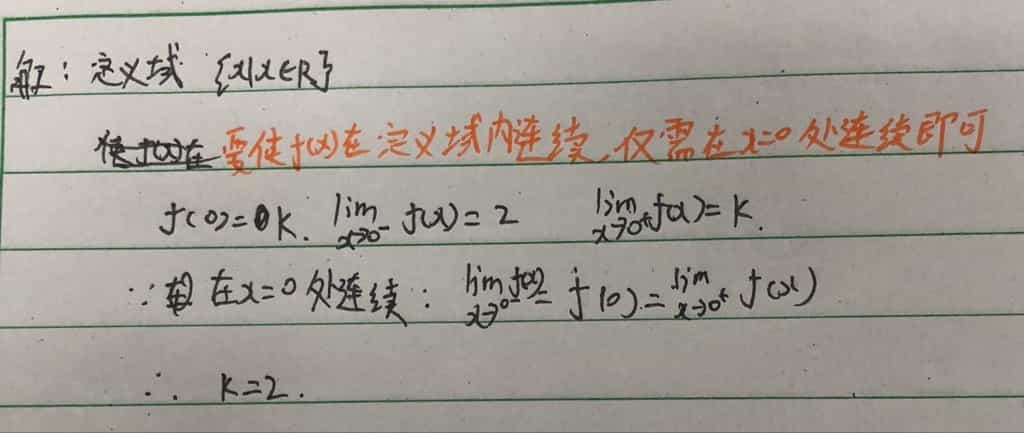 解：定义域 {x|x∈R}
使f(x)在 要使f(x)在定义域内连续，仅需在x=0处连续即可
f(0)=k. lim x→0⁻ f(x)=2 lim x→0⁺ f(x)=k.
∵ 在x=0处连续：lim x→0⁻ f(x)= f(0)= lim x→0⁺ f(x)
∴ k=2.